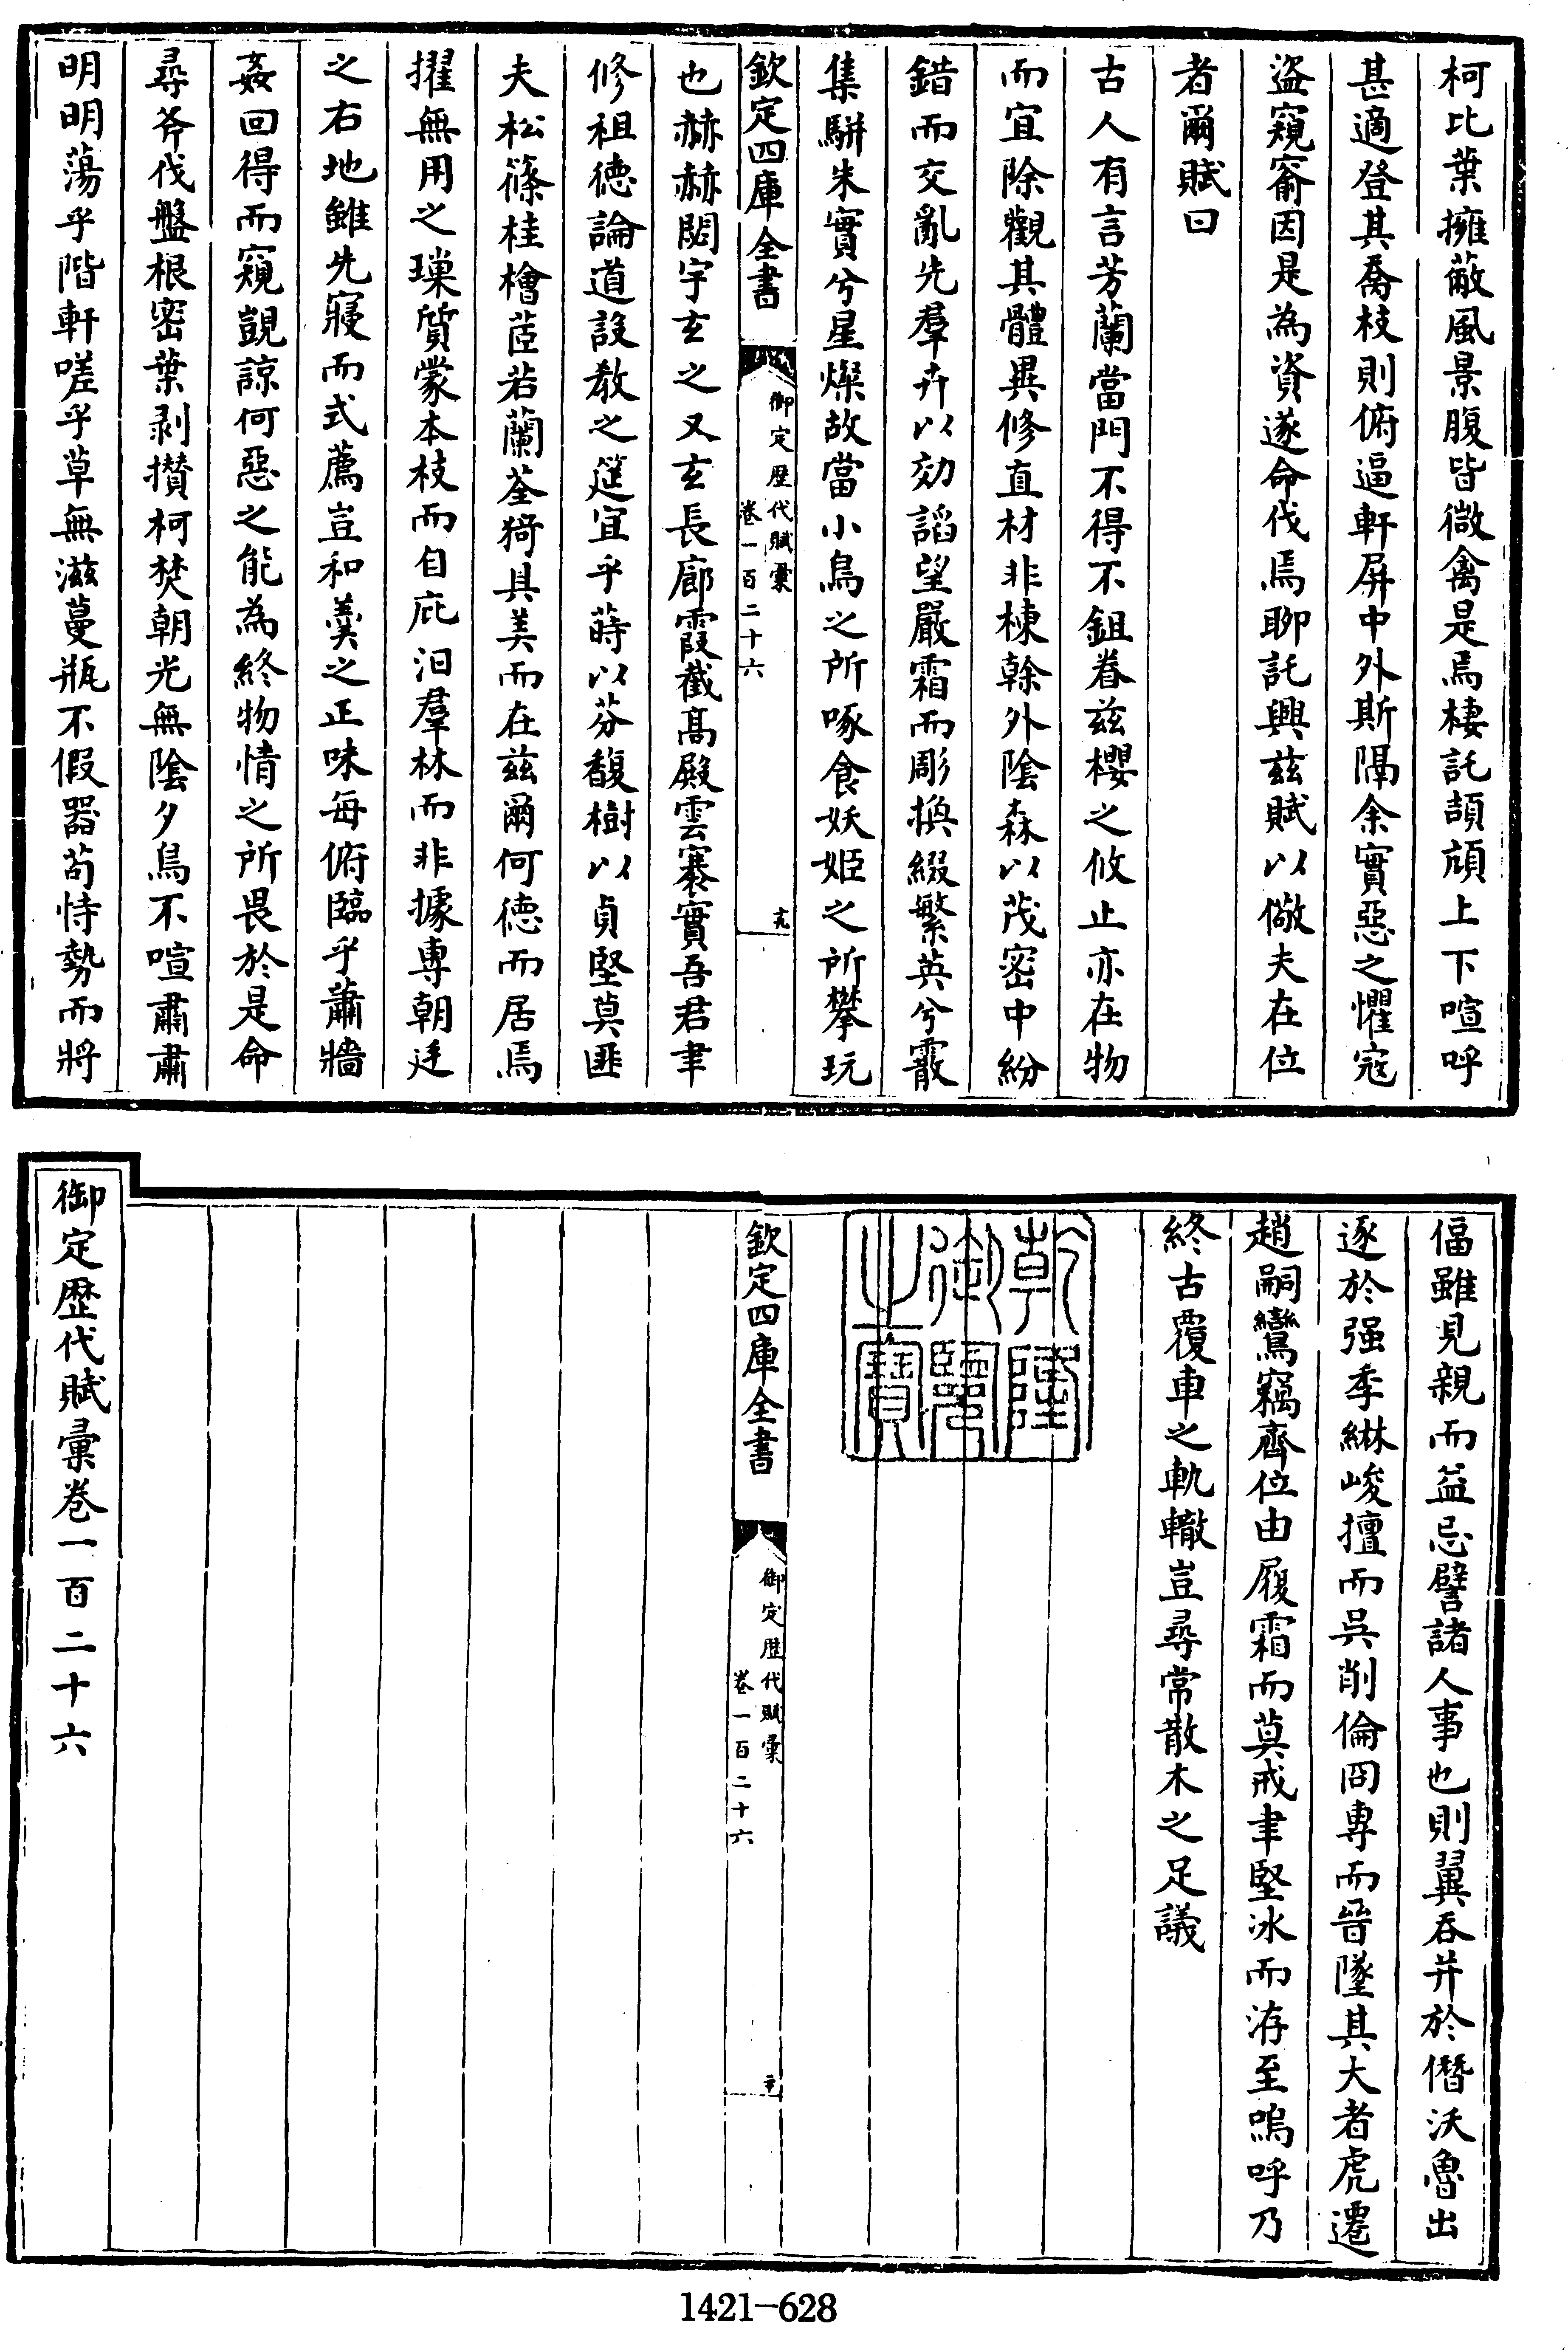 柯比葉擁蔽風景腹皆微禽是焉棲託頡頏上下喧呼
甚適登其喬枝則俯逼軒屏中外斯隔余實惡之懼寇
盜窺窬因是為資遂命伐焉聊託興兹賦以儆夫在位
者爾賦曰
古人有言芳蘭當門不得不鉏眷兹櫻之攸止亦在物
而宜除觀其體異修直材非棟幹外陰森以茂密中紛
錯而交亂先羣卉以効諂望嚴霜而彫換綴繁英兮霰
集駢朱實兮星燦故當小鳥之所啄食妖姬之所攀玩
欽定四庫全書
御定歷代賦彙
卷一百二十六
十九
也赫赫閎宇玄之又玄長廊霞截高殿雲褰實吾君聿
修祖徳論道設教之筵宜乎蒔以芬馥樹以貞堅莫匪
夫松篠桂檜茝若蘭荃猗具美而在兹爾何徳而居焉
擢無用之璅質蒙本枝而自庇汩羣林而非據專朝廷
之右地雖先寢而式薦豈和羮之正味每俯臨乎蕭牆
姦回得而窺覬諒何惡之能為終物情之所畏於是命
尋斧伐盤根密葉剥攢柯焚朝光無陰夕鳥不喧肅肅
明明蕩乎階軒嗟乎草無滋蔓瓶不假器苟恃勢而將
偪雖見親而益忌譬諸人事也則翼吞并於僭沃魯出
逐於强季緋峻擅而吳削倫冏專而晉墜其大者虎遷
趙嗣鸞竊齊位由履霜而莫戒聿堅冰而洊至嗚呼乃
終古覆車之軌轍豈尋常散木之足議
乾隆
御覽
之寶
欽定四庫全書
御定歷代賦彙
卷一百二十六
二十
御定歷代賦彙卷一百二十六
1421-628